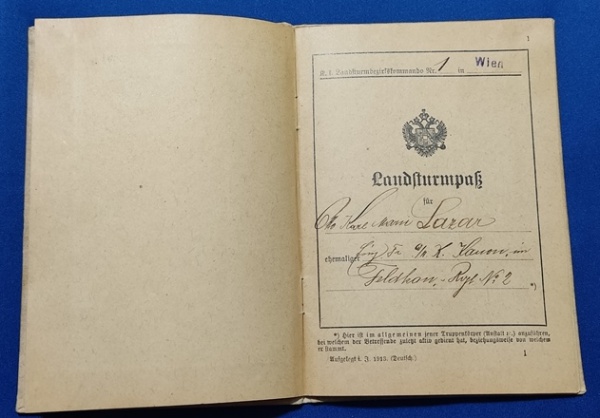 1
K. k. Landsturmbezirkskommando Nr. 1 in Wien
Landsturmpaß
für
Otto Karl Lazar
ehemaliger Einj. Fr. K. Kanon. im
Feldkan. - Rgt № 2 *)
*) Hier ist im allgemeinen jener Truppenkörper (Anstalt ꝛc.) anzuführen,
bei welchem der Betreffende zuletzt aktiv gedient hat, beziehungsweise von welchem
er stammt.
(Aufgelegt i. J. 1915. (Deutsch.)
1